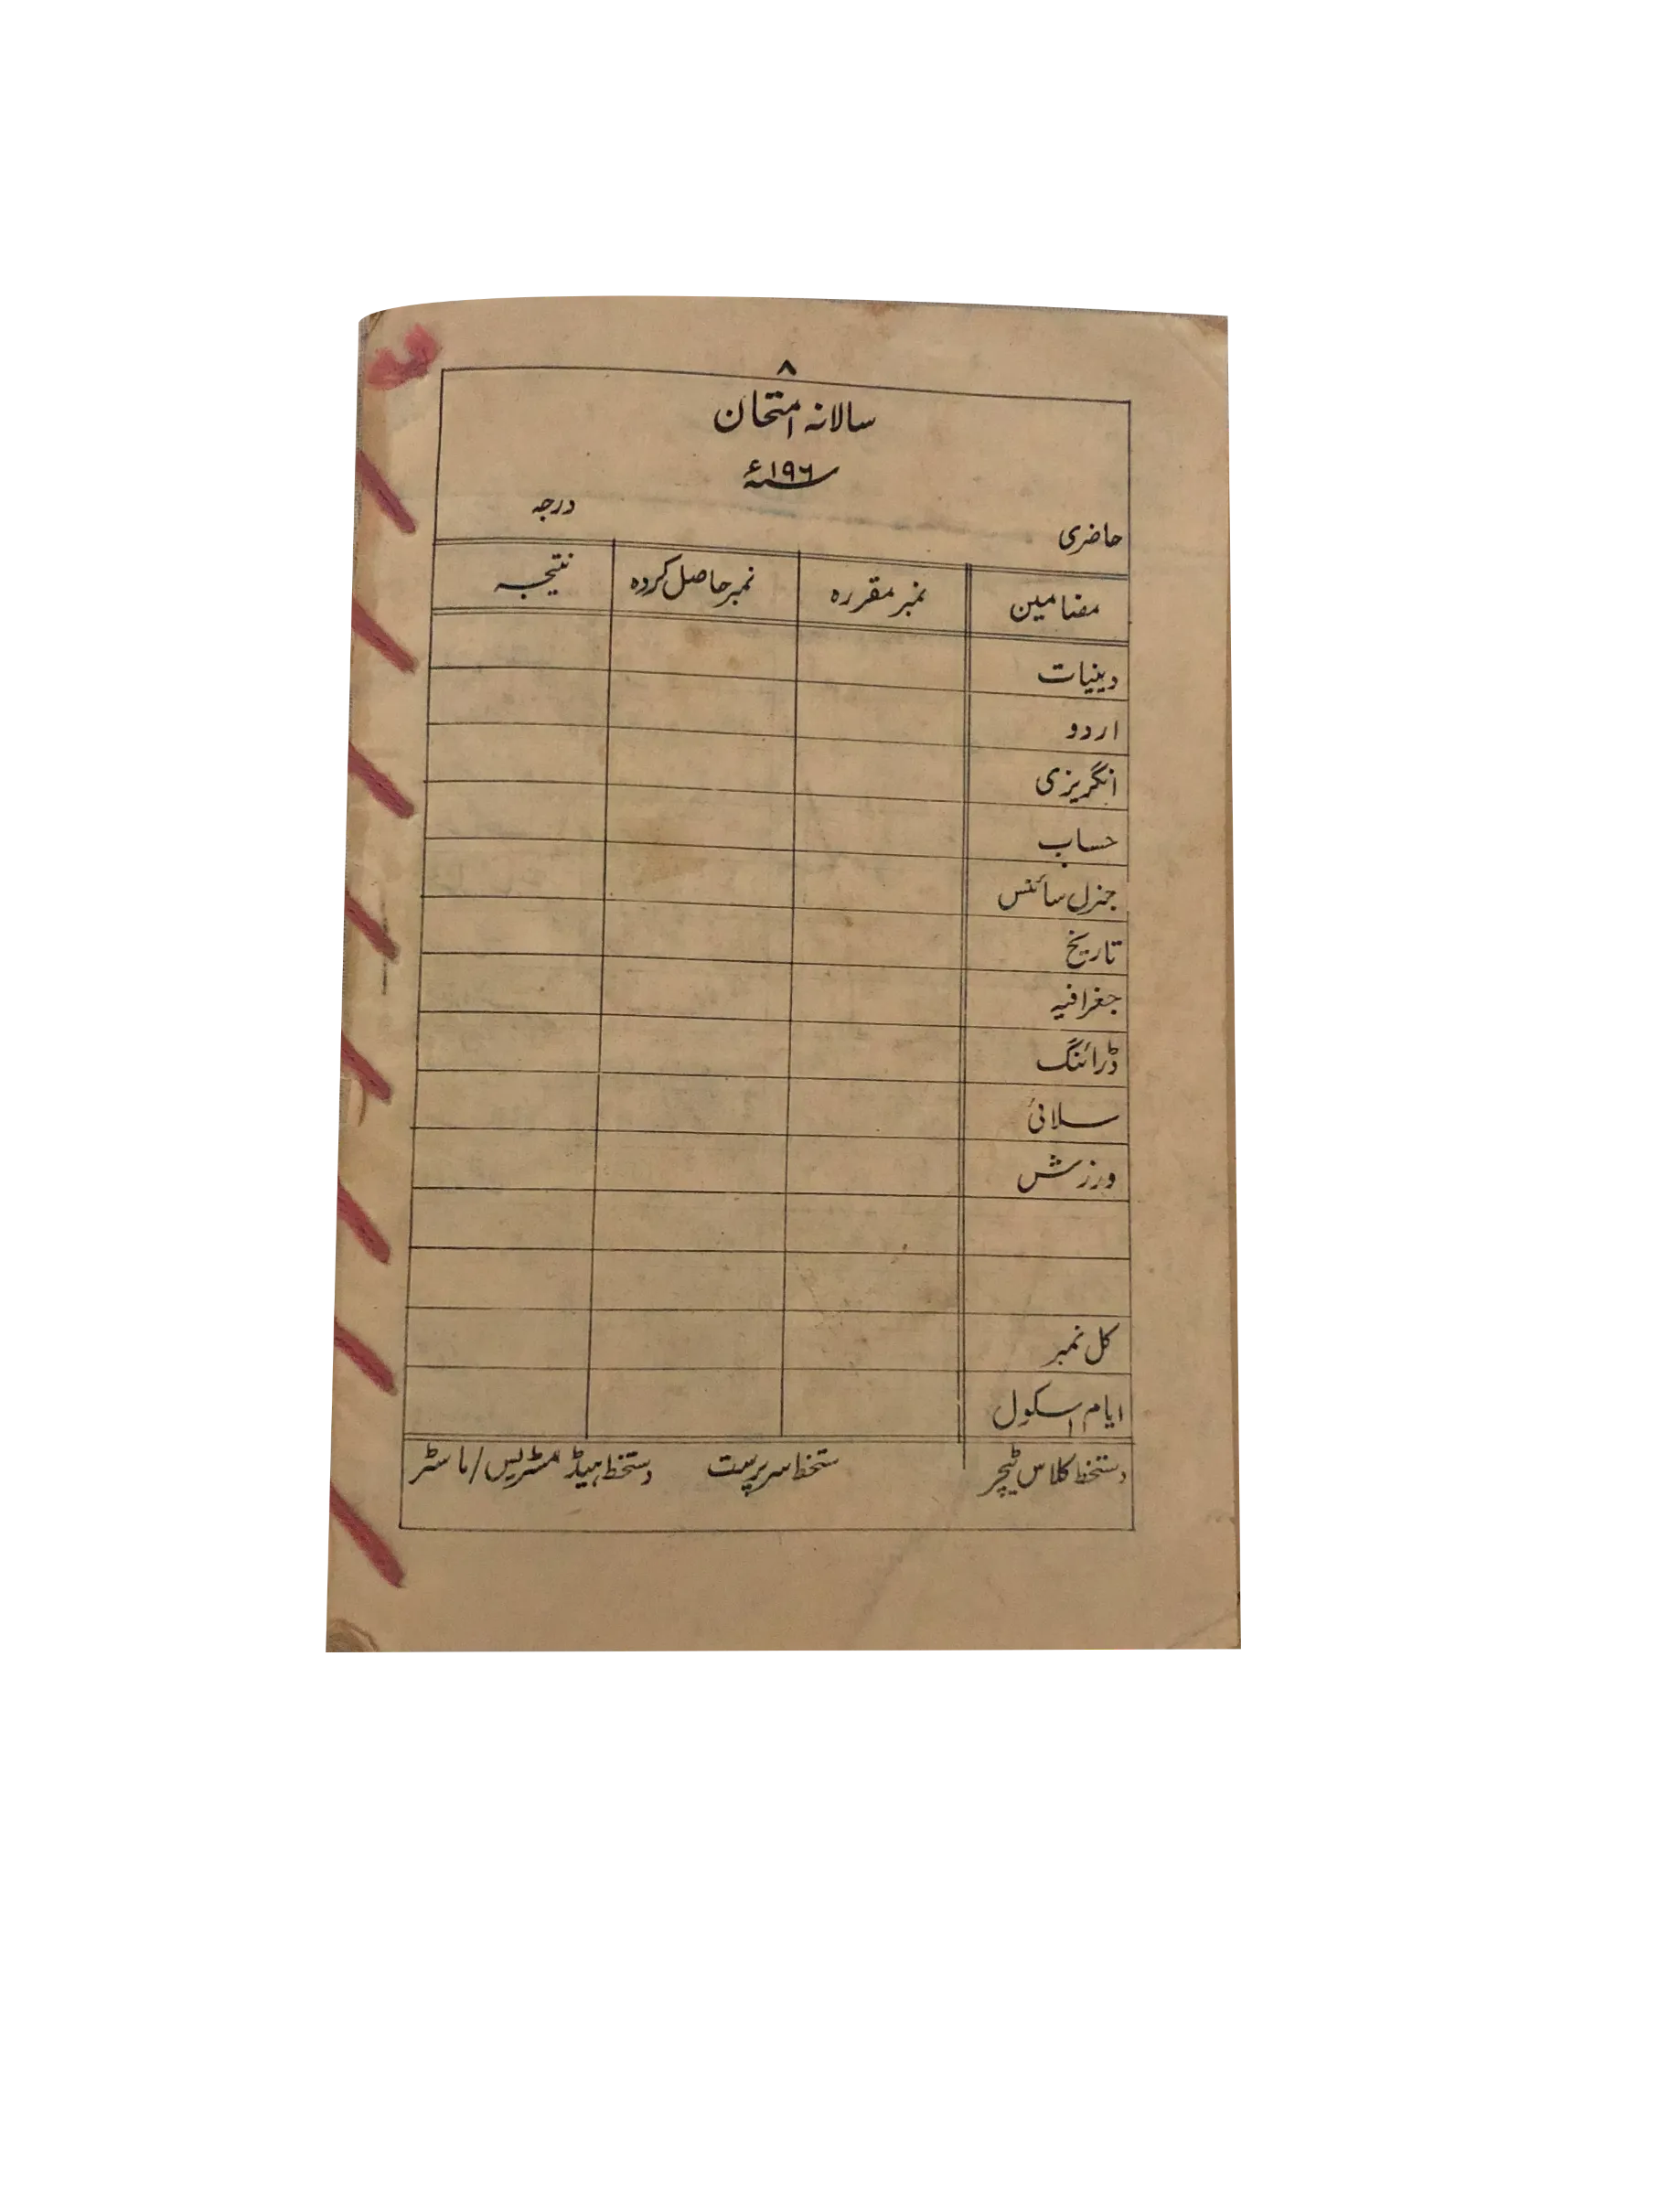 ۸
سالانہ امتحان
سنہ ۱۹۶ء
حاضری درجہ
مضامین نمبر مقررہ نمبر حاصل کردہ نتیجہ
دینیات
اردو
انگریزی
حساب
جنرل سائنس
تاریخ
جغرافیہ
ڈرائنگ
سلائی
ورزش
کل نمبر
ایام اسکول
دستخط کلاس ٹیچر ستخط سرپرست دستخط ہیڈ مسٹریس/ماسٹر